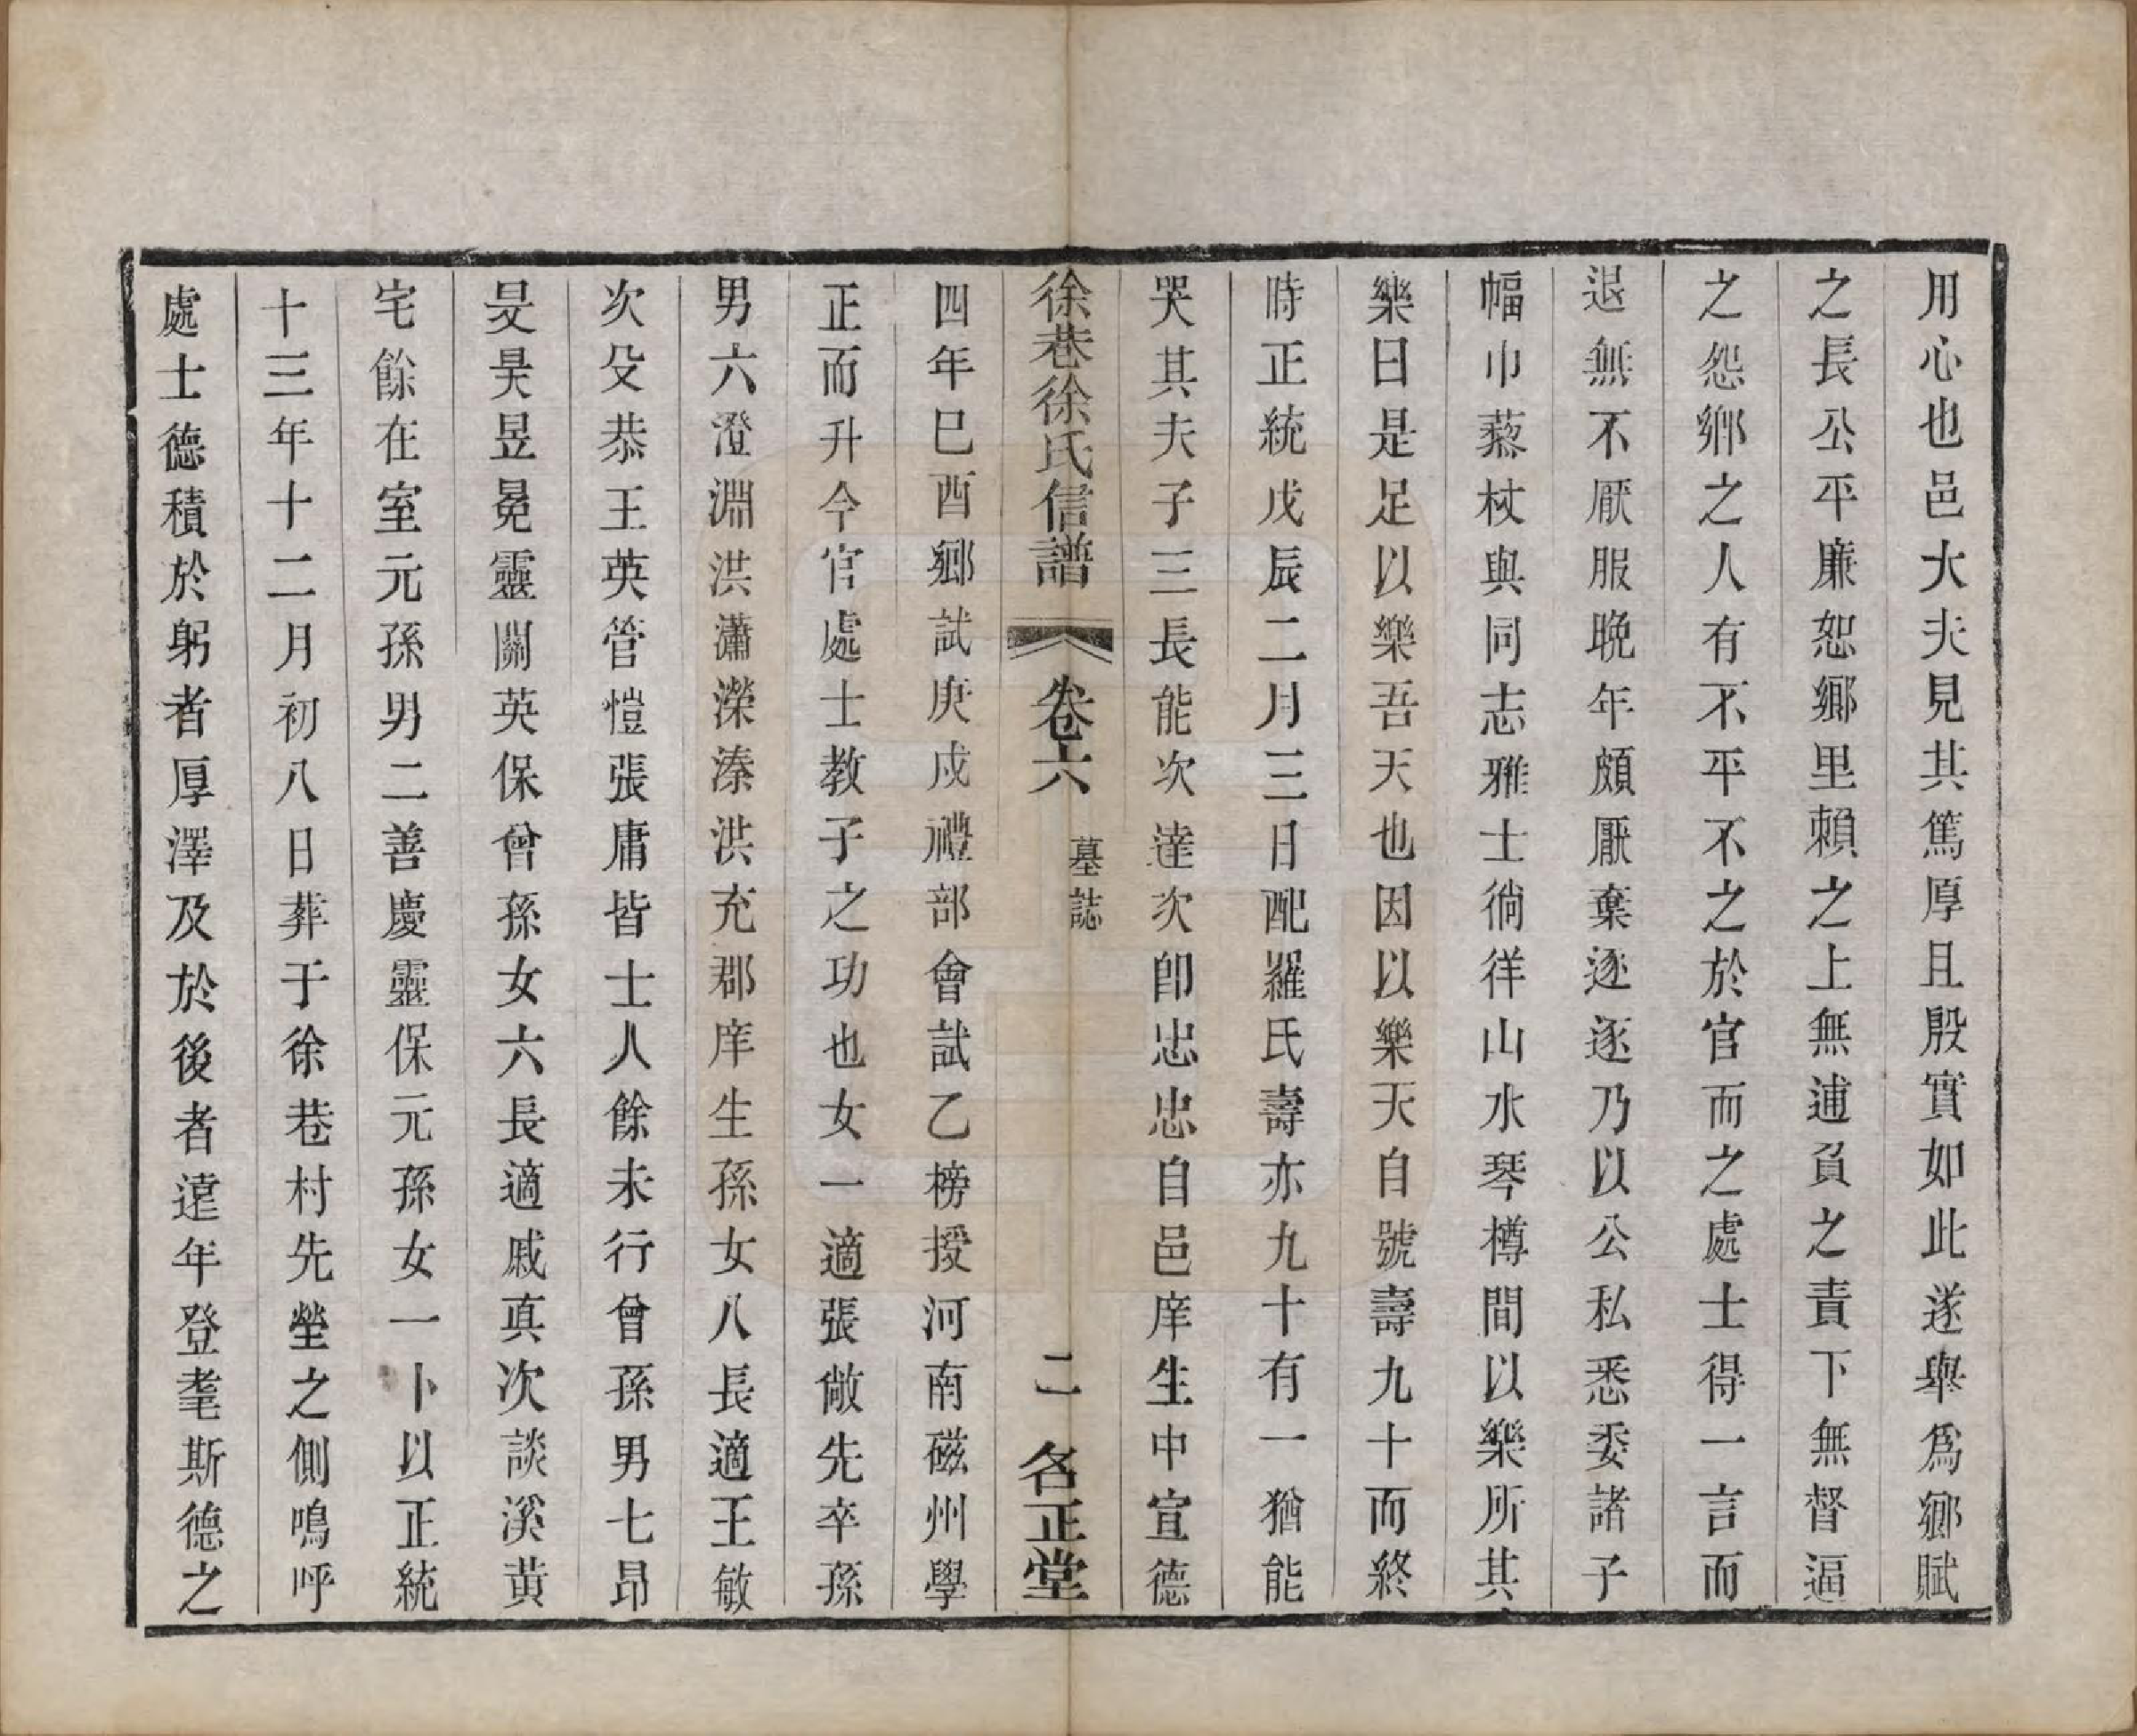 用心也邑大夫見其篤厚且殷實如此遂舉爲鄉賦
之長公平廉恕鄉里賴之上無逋負之責下無督逼
之怨鄉之人有不平不之於官而之處士得一言而
退無不厭服晩年頗厭棄逐逐乃以公私悉委諸子
幅巾藜杖與同志雅士徜徉山水琴樽間以樂所其
樂曰是足以樂吾天也因以樂天自號壽九十而終
時正統戊辰二月三日配羅氏壽亦九十有一猶能
哭其夫子三長能次達次卽忠忠自邑庠生中宣德
徐巷徐氏信譜 卷六 墓誌 二 名正堂
四年巳酉鄉試庚戍禮部會試乙榜授河南磁州學
正而升今官處士教子之功也女一適張儆先卒孫
男六澄淵洪瀟濚溱洪充郡庠生孫女八長適王敏
次殳恭王英管愷張庸皆士人餘未行曾孫男七昂
旻昊昱冕靈關英保曾孫女六長適戚真次談溪黄
宅餘在室元孫男二善慶靈保元孫女一卜以正統
十三年十二月初八日葬于徐巷村先塋之側鳴呼
處士德積於躬者厚澤及於後者遠年登耄斯德之